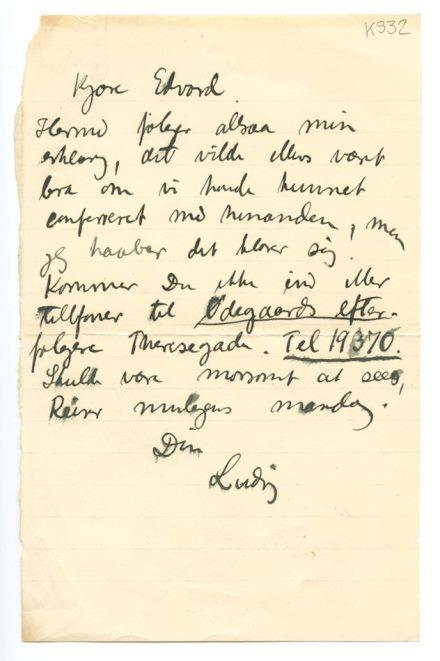 K932
Kjære Edvard.
Hermed følger altsaa min
erklæring, det vilde ellers vært
bra om vi havde kunnet
confereret med hinanden, men
jeg haaber det klarer sig.
Kommer Du ikke ind eller
telefoner til Ødegaards efter-
følgere Theresegade. Tel 19370.
Skulde være morsomt at sees,
Reiser muligens mandag.
Din
Ludvig